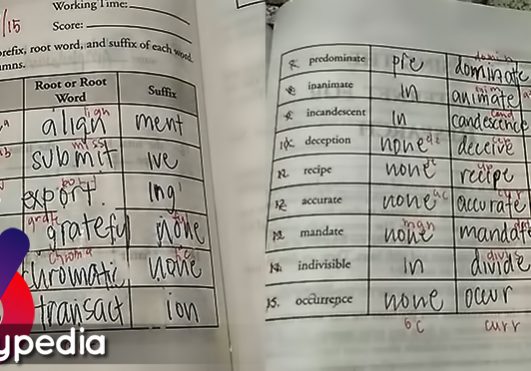 Working Time:
/15
Score:
prefix, root word, and suffix of each word.
umns.
Root or Root Word
Suffix
align
lign
ment
submit
miss
ive
export
port
ing
grateful
none
chromatic
chroma
none
transact
ion
predominate
pre
dominate
inanimate
in
animate
incandescent
in
candescence
cand
deception
none
de
deceive
recipe
none
re
recipe
12. accurate
none
ac
accurate
mandate
none
man
indivisible
in
divide
15. occurrence
none
occur
oc
curr
ypedia